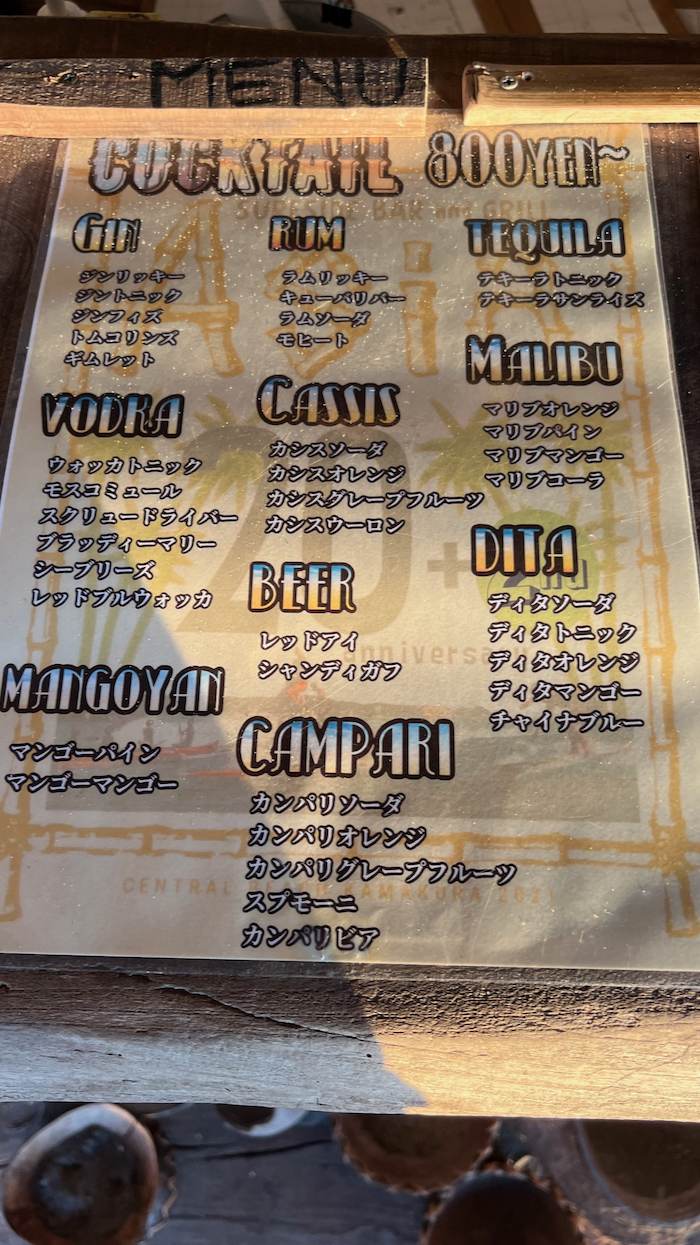 MENU
COCKTAIL 800YEN~
SURFSIDE BAR and GRILL
GIN
ジンリッキー
ジントニック
ジンフィズ
トムコリンズ
ギムレット
RUM
ラムリッキー
キューバリバー
ラムソーダ
モヒート
TEQUILA
テキーラトニック
テキーラサンライズ
MALIBU
マリブオレンジ
マリブパイン
マリブマンゴー
マリブコーラ
VODKA
ウォッカトニック
モスコミュール
スクリュードライバー
ブラッディーマリー
シーブリーズ
レッドブルウォッカ
CASSIS
カシスソーダ
カシスオレンジ
カシスグレープフルーツ
カシスウーロン
BEER
レッドアイ
シャンディガフ
DITA
ディタソーダ
ディタトニック
ディタオレンジ
ディタマンゴー
チャイナブルー
MANGOYAN
マンゴーパイン
マンゴーマンゴー
CAMPARI
カンパリソーダ
カンパリオレンジ
カンパリグレープフルーツ
スプモーニ
カンパリビア
20+
CENTRAL KAMAKURA 2021